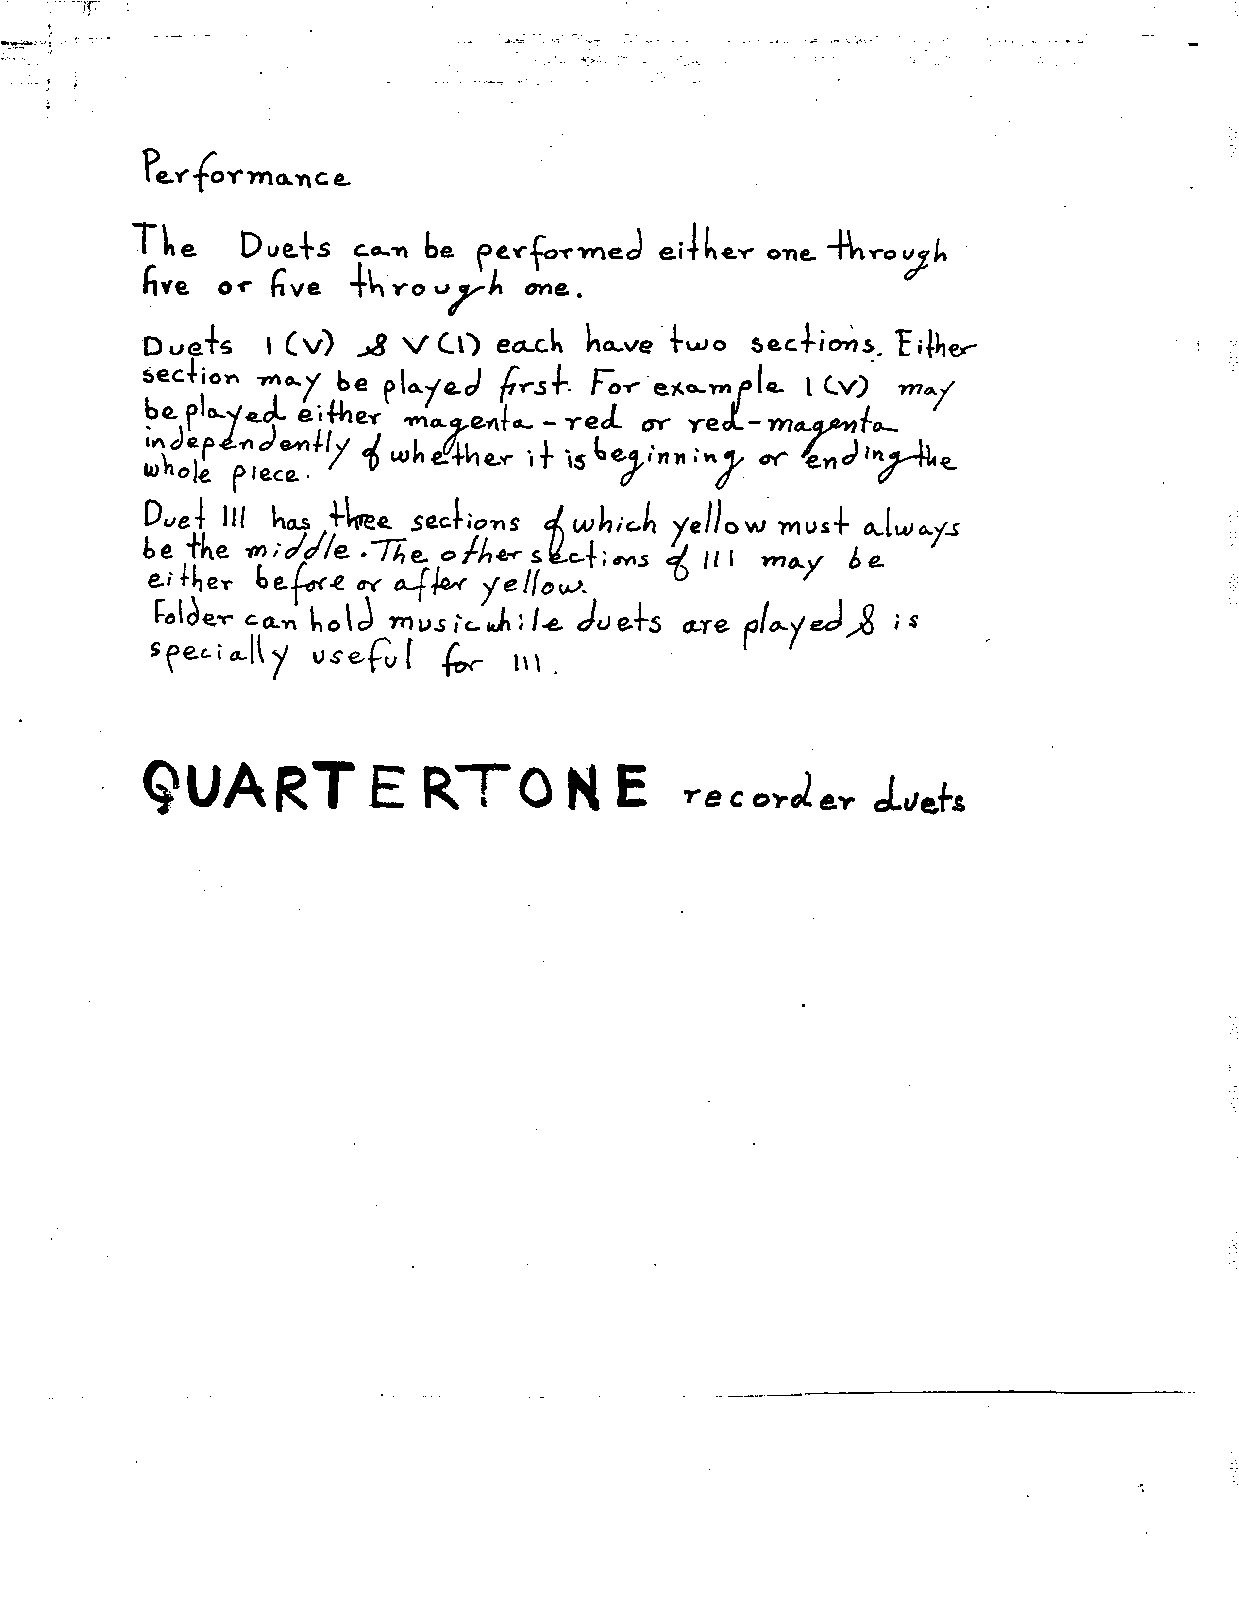 Performance
The Duets can be performed either one through
five or five through one.
Duets I (V) & V (I) each have two sections. Either
section may be played first. For example I (V) may
be played either magenta - red or red - magenta
independently of whether it is beginning or ending the
whole piece.
Duet III has three sections of which yellow must always
be the middle. The other sections of III may be
either before or after yellow.
Folder can hold music while duets are played & is
specially useful for III.
QUARTERTONE recorder duets